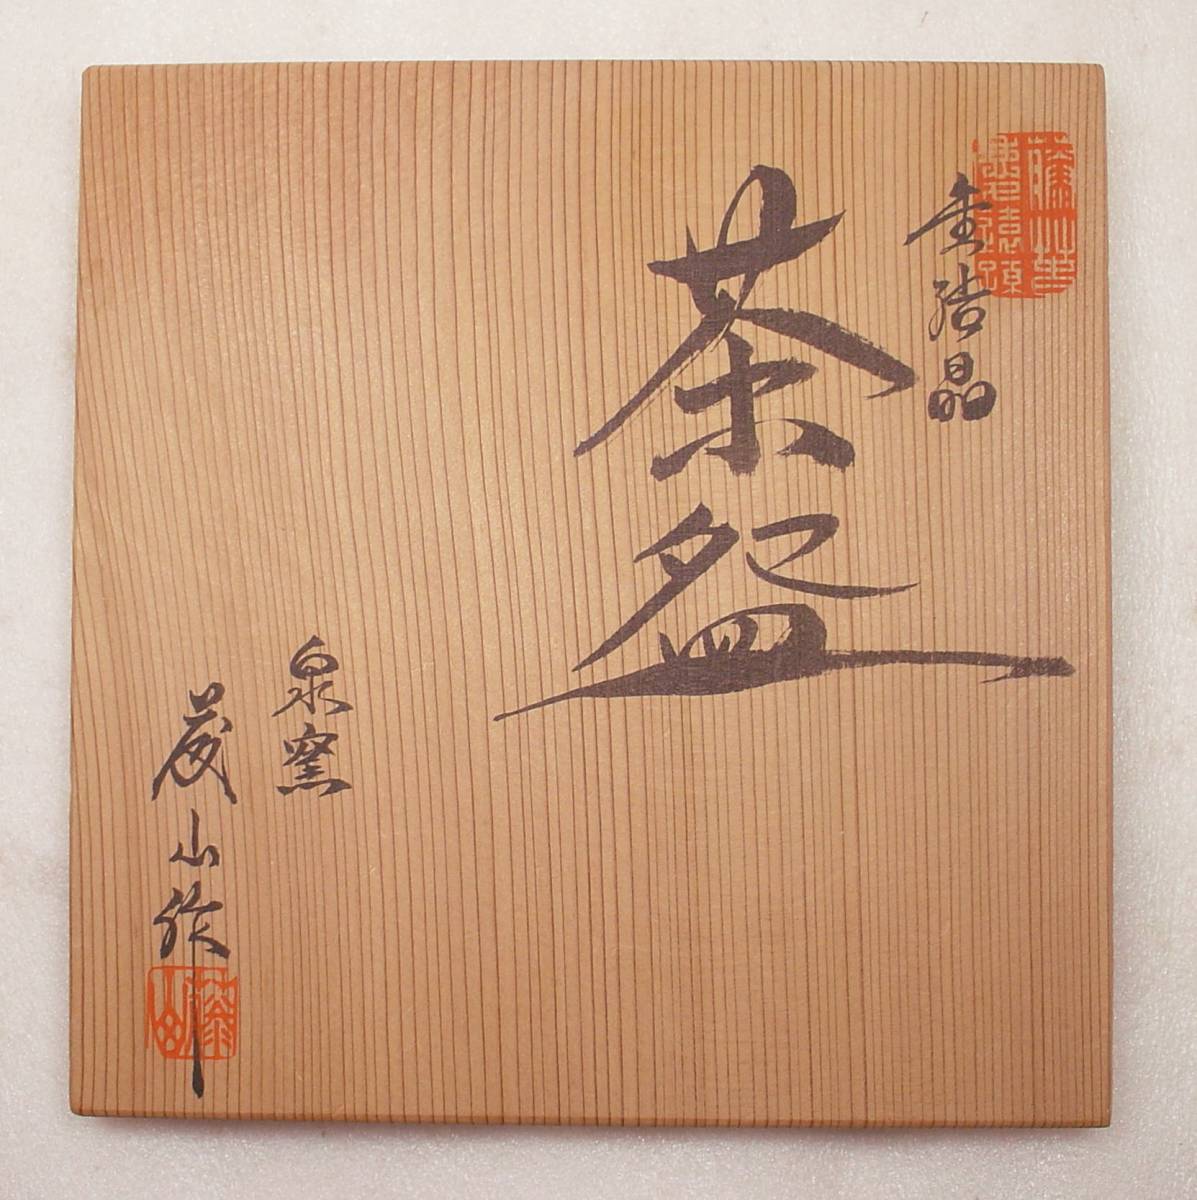 金結晶
茶盌
泉窯
茂山作